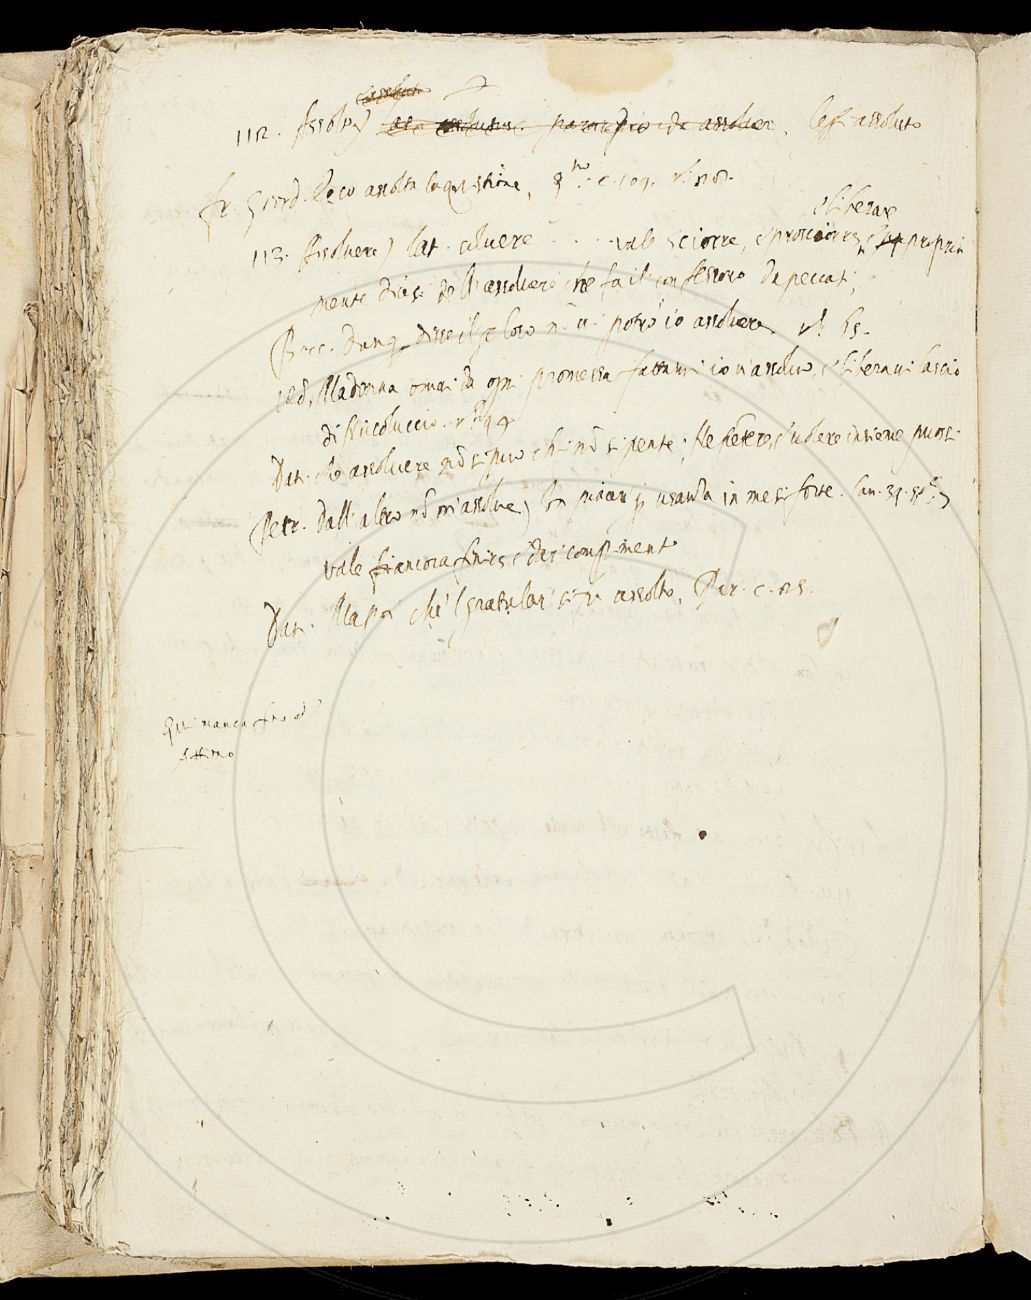 112. Assolto) da assolvere, leggi assoluto
fr. Giord. Reco assolta la quistione, c. 109.
e liberare
113. Assolvere) lat. solvere . . . . vale sciorre, e prosciorre, e propria
mente dicesi dell'assolvere che fa il confessoro da peccati,
Bocc. Dunq. disse il geloso nō vi potrò io assolvere. 65.
ed, Madonna omai da ogni promessa fattami io v'assolvo, e libera vi lascio
di Niccoluccio. 94
Dan. Ch'assolvere nō si può chi nō si pente; Ne pentere, e volere insieme puossi
Petr. Dall'altro nō m'assolve) Un piacer usanza in me si forte. Can. 39. St.
vale ancora finire e dar compimento
Dan. Ma poi che 'l gratular si fu assolto, Par. c. 25.
Qui manca fino ad